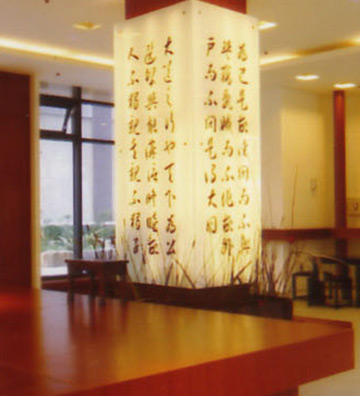 大道之行也天下為公
選賢與能講信修睦故
人不獨親其親不獨子
為己是故謀閉而不興
盜竊亂賊而不作故外
戶而不閉是謂大同